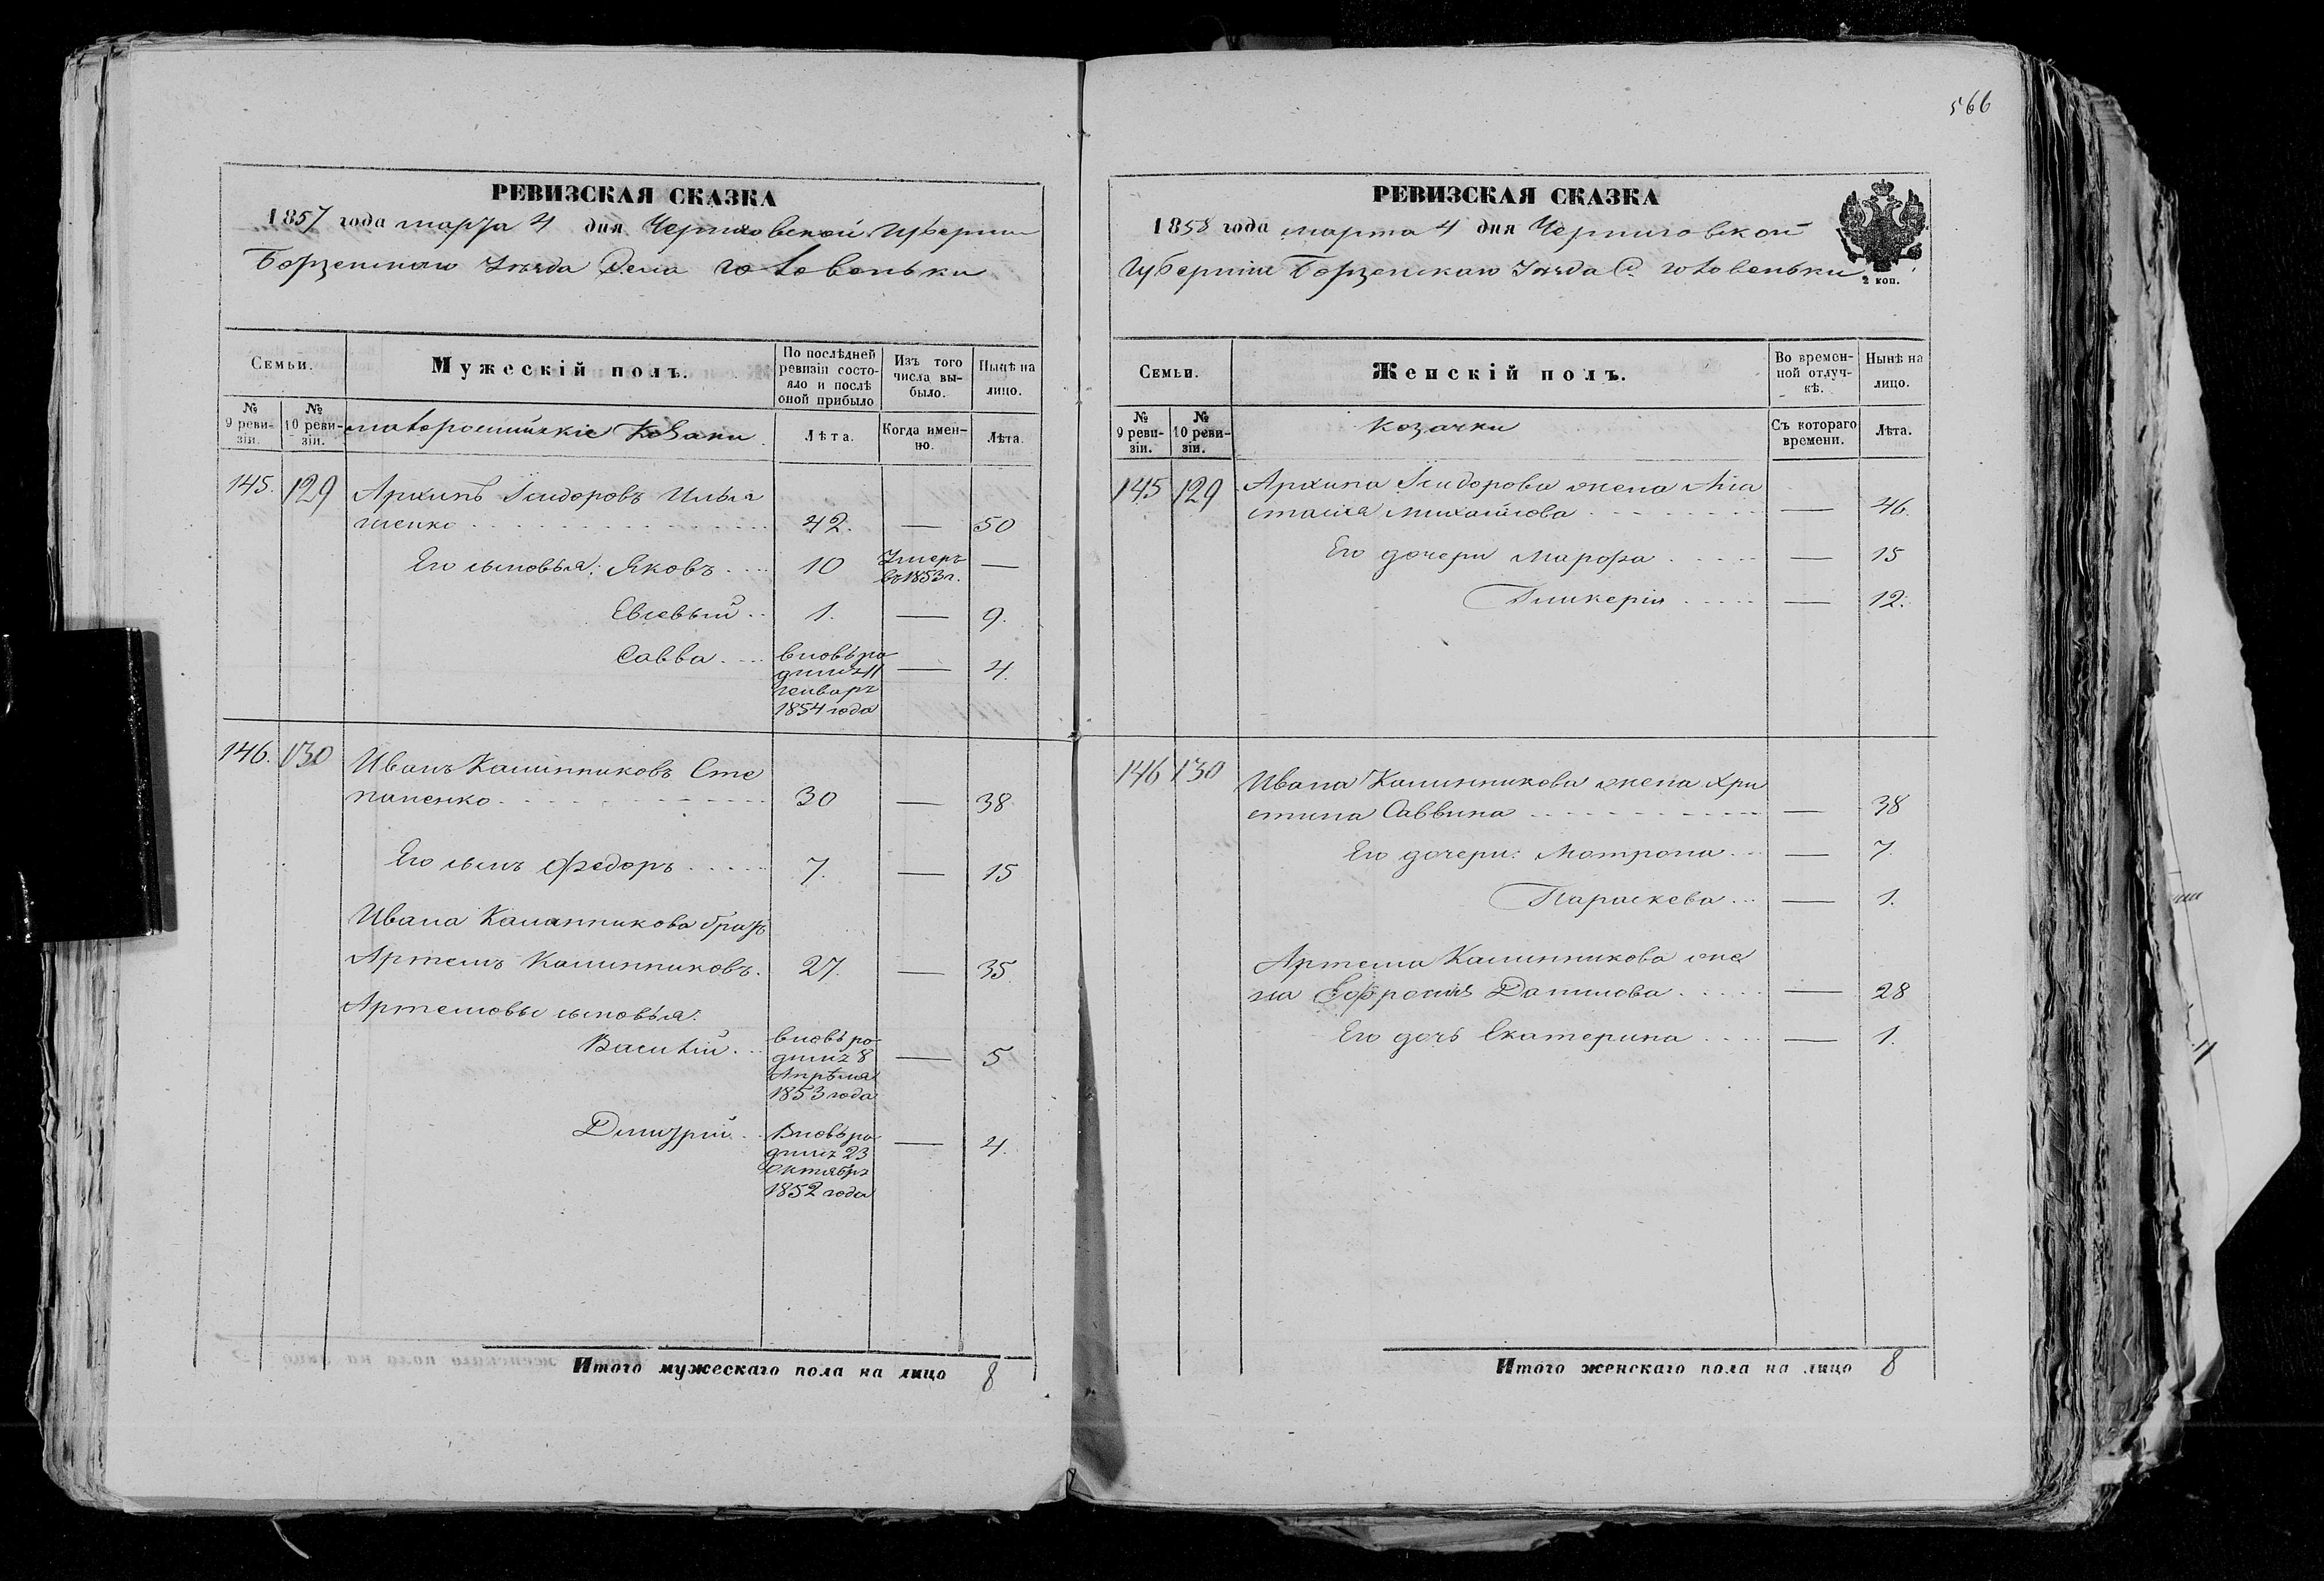 566
РЕВИЗСКАЯ СКАЗКА
1857 года марта 4 дня Черниговской Губернии
Борзенскаго Уѣзда Села Головеньки
Семьи.
Мужескій полъ.
По послѣдней ревизіи состояло и послѣ оной прибыло
Изъ того числа выбыло.
Нынѣ на лицо.
№ 9 ревизіи.
№ 10 ревизіи.
малороссийскіе Козаки
Лѣта.
Когда именно.
Лѣта.
145. 129 Архипъ Исидоровъ Илья
шенко 42. — 50
Его сыновья: Яковъ 10 Умеръ въ 1853 г. —
Евсевый 1. — 9.
Савва вновь родился 11 генваря 1854 года — 4.
146. 130 Иванъ Калинниковъ Сте
паненко 30 — 38
Его сынъ Федоръ 7. — 15
Ивана Калинникова братъ
Артемъ Калинниковъ. 27. — 35.
Артемовы сыновья:
Василій вновь родился 8 Апрѣля 1853 года — 5
Дмитрій Вновь родился 23 Октября 1852 года — 4.
Итого мужескаго пола на лицо 8
РЕВИЗСКАЯ СКАЗКА
1858 года марта 4 дня Черниговской
Губерніи Борзенскаго Уѣзда С. Головеньки
2 коп.
Семьи.
Женскій полъ.
Во временной отлучкѣ.
Нынѣ на лицо.
№ 9 ревизіи.
№ 10 ревизіи.
Козачки
Съ котораго времени.
Лѣта.
145 129 Архипа Исидорова жена Ана
стасия Михайлова — 46.
Его дочери Марфа — 15
Гликерія — 12.
146 130 Ивана Калинникова жена Хри
стина Саввина — 38
Его дочери: Мотрона — 7.
Параскева — 1.
Артема Калинникова же
на Ефросиния Данилова — 28
Его дочь Екатерина — 1.
Итого женскаго пола на лицо 8